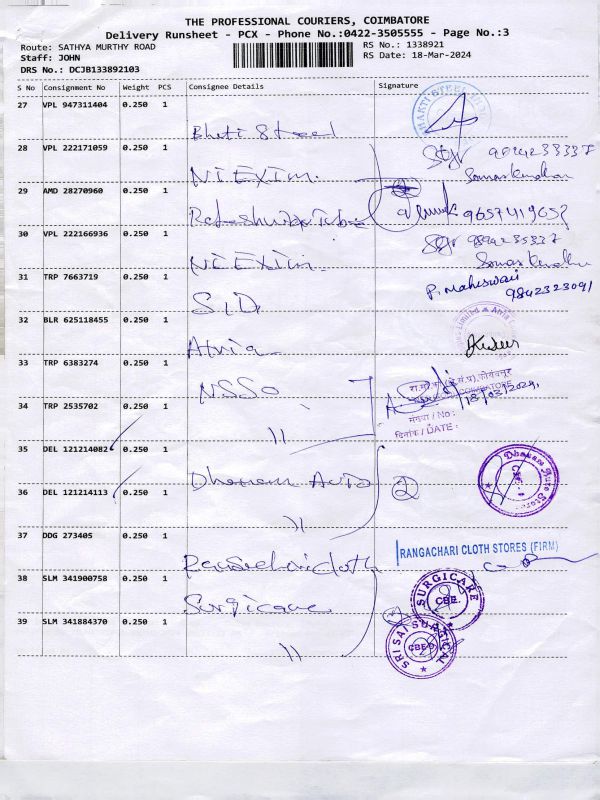 THE PROFESSIONAL COURIERS, COIMBATORE
Delivery Runsheet - PCX - Phone No.:0422-3505555 - Page No.:3
Route: SATHYA MURTHY ROAD
RS No.: 1338921
Staff: JOHN
RS Date: 18-Mar-2024
DRS No.: DCJB133892103
S No Consignment No Weight PCS Consignee Details Signature
27 VPL 947311404 0.250 1
Bhati Steel
28 VPL 222171059 0.250 1
NI EXIM.
29 AMD 28270960 0.250 1
30 VPL 222166936 0.250 1
NI EXIM.
31 TRP 7663719 0.250 1
SID
P. Maheswari
9842323091
32 BLR 625118455 0.250 1
Atria
33 TRP 6383274 0.250 1
NSSO
18/03/2024,
34 TRP 2535702 0.250 1
〃
संख्या / No :
दिनांक / DATE :
35 DEL 121214082 0.250 1
Dhanam Auto
2
Dhanam Auto Stores
36 DEL 121214113 0.250 1
〃
37 DDG 273405 0.250 1
RANGACHARI CLOTH STORES (FIRM)
38 SLM 341900758 0.250 1
Surgicare
SURGICARE
CBE.
39 SLM 341884370 0.250 1
〃
SRI SAI SURGICAL
CBE